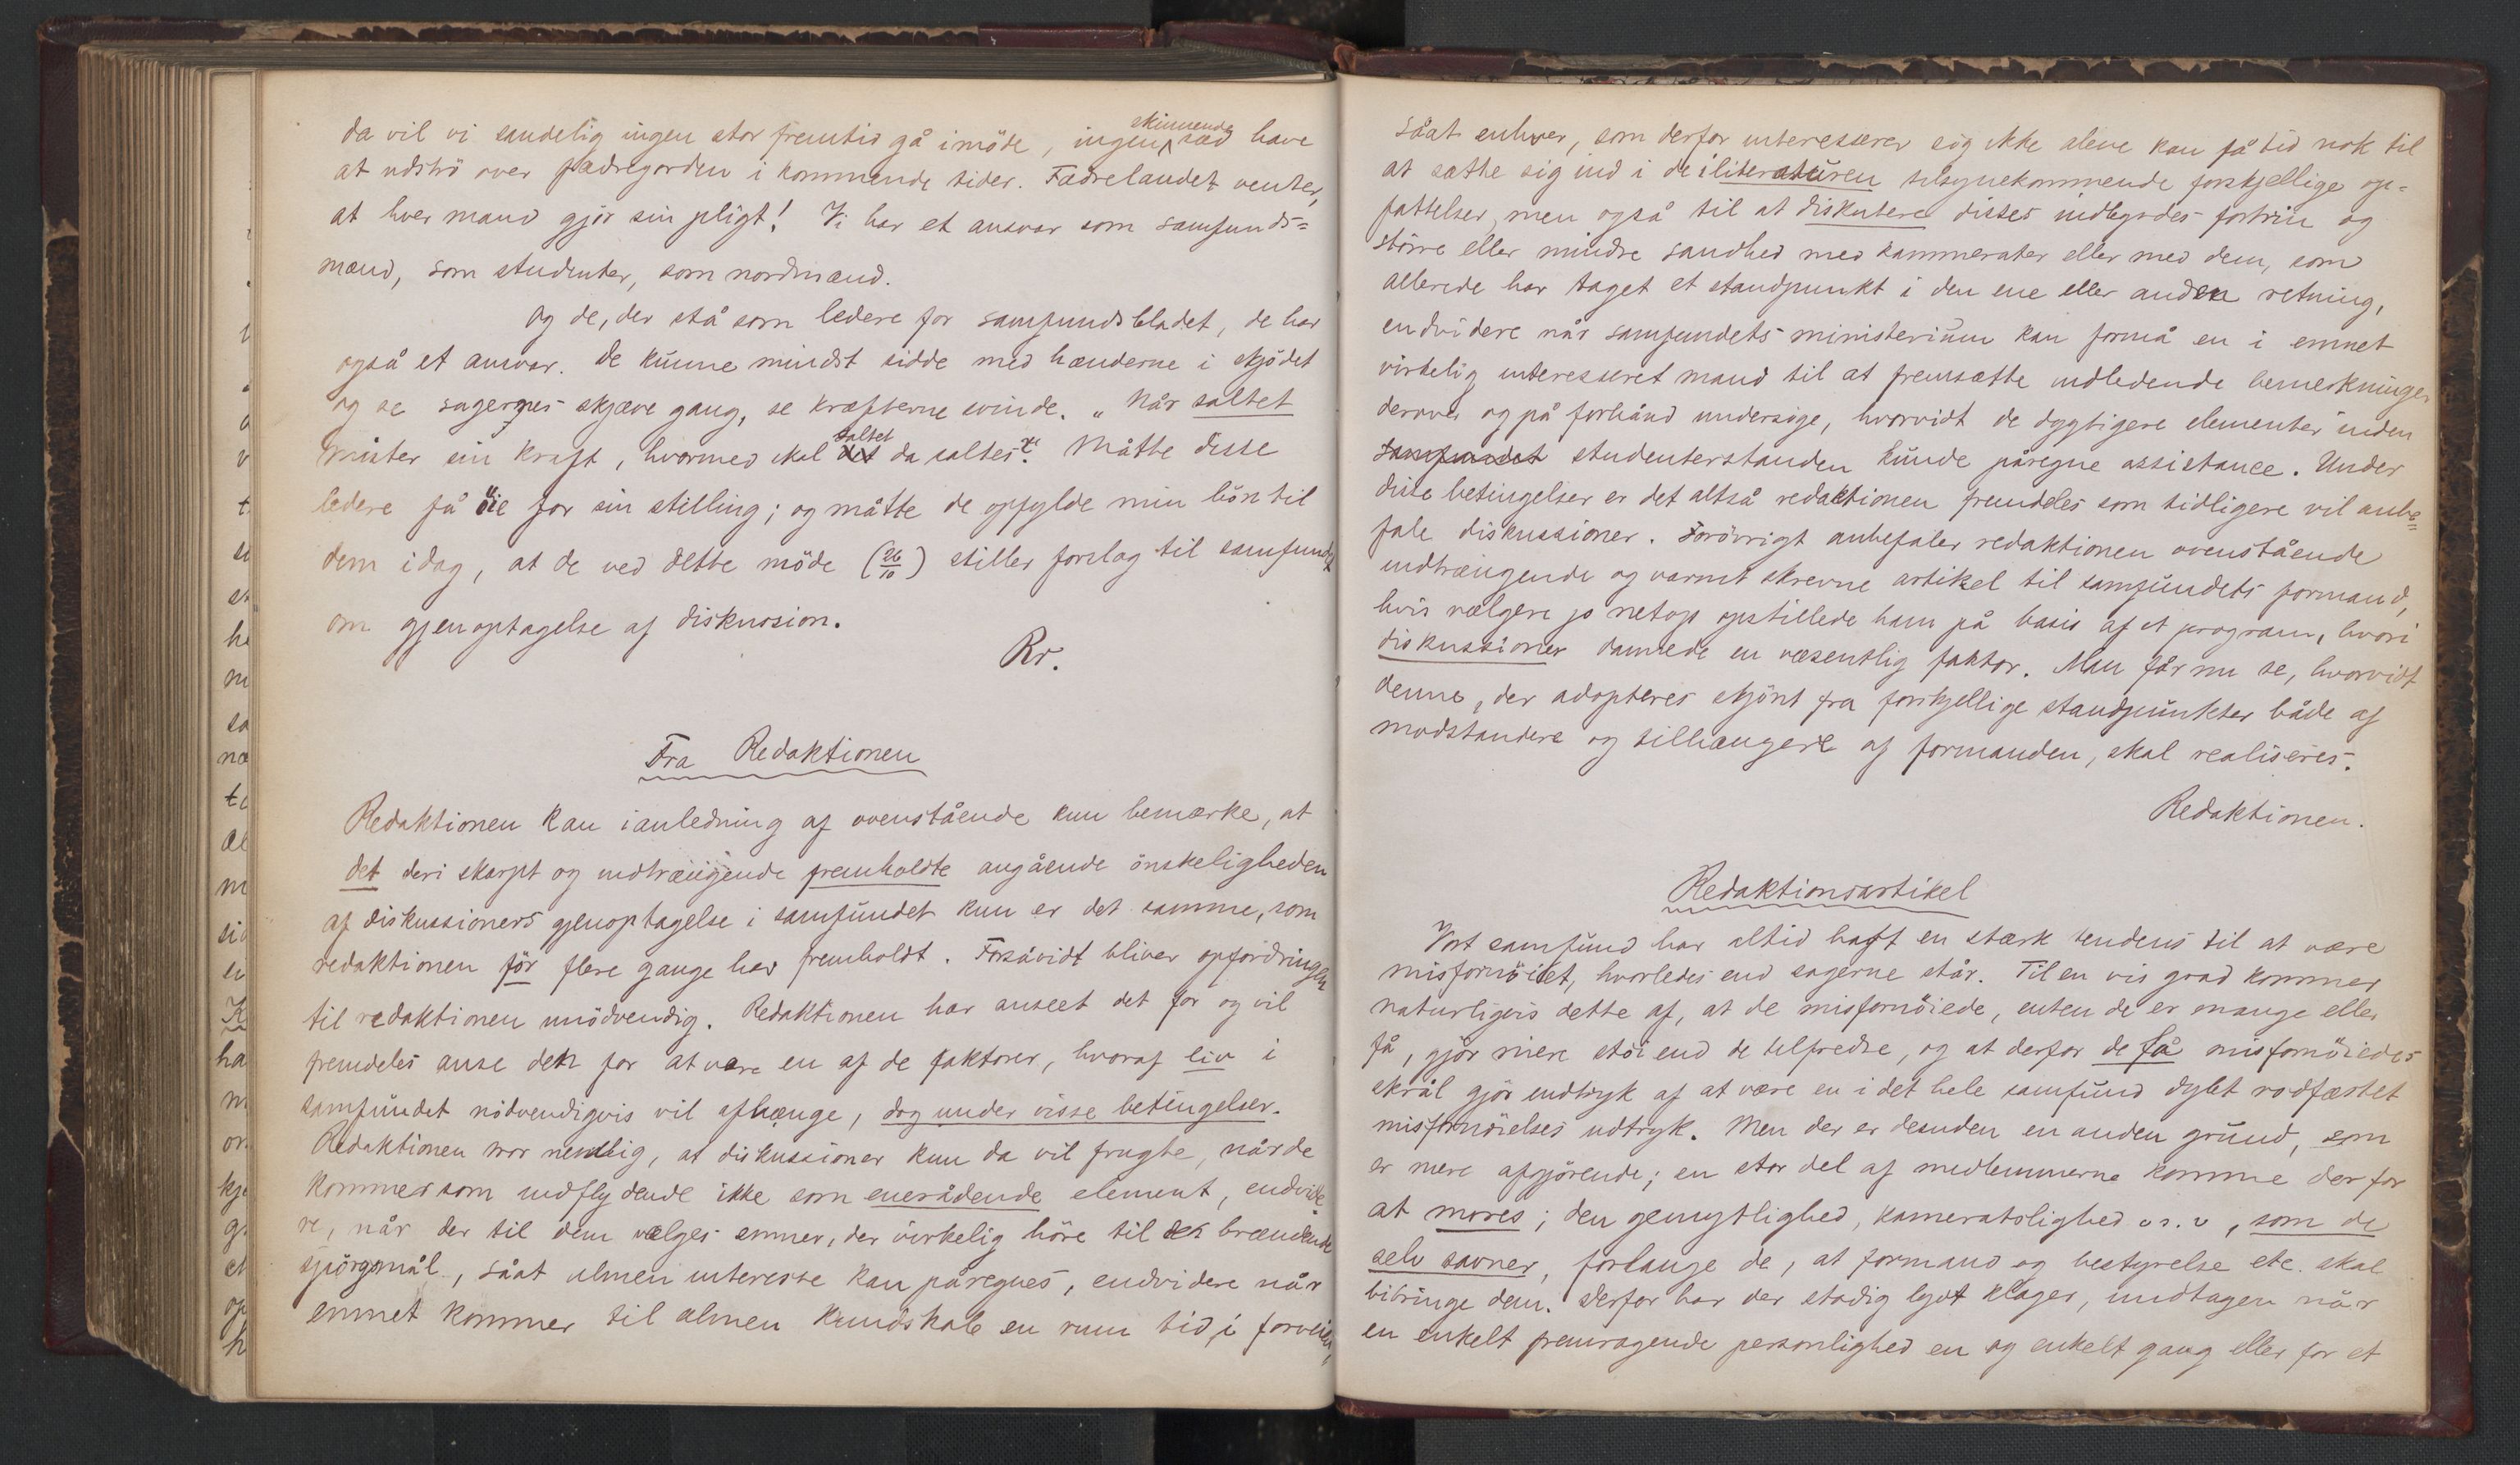 da vil vi sandelig ingen stor fremtid gå imöde, ingen skinnende sæd have
at udströ over fædregorden i kommende tider. Fædrelandet venter,
at hver mand gjör sin pligt! Vi har et ansvar som samfunds=
mænd, som studenter, som nordmænd.
Og de, der stå som ledere for samfundsbladet, de har
også et ansvar. De kunne mindst sidde med hænderne i skjödet
og se sagernes skjæve gang, se kræfterne svinde. „Når saltet
mister sin kraft, hvormed skal det saltet da saltes?“ Måtte disse
ledere få öie for sin stilling; og måtte de opfylde min bön til
dem idag, at de ved dette möde (26/10) stiller forslag til samfundet
om gjenoptagelse af diskussion.
Rr.
Fra Redaktionen
Redaktionen kan i anledning af ovenstående kun bemærke, at
det deri skarpt og indtrængende fremholdte angående önskeligheden
af diskussioners gjenoptagelse i samfundet kun er det samme, som
redaktionen för flere gange har fremholdt. Forsåvidt bliver opfordringen
til redaktionen unödvendig. Redaktionen har anseet det for og vil
fremdeles anse det for at være en af de faktorer, hvoraf liv i
samfundet nödvendigvis vil afhænge, dog under visse betingelser.
Redaktionen tror nemlig, at diskussioner kun da vil frugte, når de
kommer som indflydende ikke som enerådende element, endvide=
re, når der til dem vælges emner, der virkelig höre til de brændende
spörgsmål, såat almen interesse kan påregnes, endvidere når
emnet kommer til almen kundskab en rum tid i forveien,
såat enhver, som derfor interesserer sig ikke alene kan få tid nok til
at sætte sig ind i de i literaturen tilsynekommende forskjellige op=
fattelser, men også til at diskutere disses indbyrdes fortrin og
större eller mindre sandhed med kammerater eller med dem, som
allerede har taget et standpunkt i den ene eller anden retning,
endvidere når samfundets ministerium kan formå en i emnet
virkelig interesseret mand til at fremsætte indledende bemerkninger
derover og på forhånd undersöge, hvorvidt de dygtigere elementer inden
samfundet studenterstanden kunde påregne assistance. Under
disse betingelser er det altså redaktionen fremdeles som tidligere vil anbe=
fale diskussioner. Forövrigt anbefaler redaktionen ovenstående
indtrængende og varmt skrevne artikel til samfundets formand,
hvis vælgere jo netop opstillede ham på basis af et program, hvori
diskussioner dannede en væsentlig faktor. Man får nu se, hvorvidt
denne, der adopteres skjönt fra forskjellige standpunkter både af
modstandere og tilhængere af formanden, skal realiseres.
Redaktionen.
Redaktionsartikel
Vort samfund har altid haft en stærk tendens til at være
misfornöiet, hvorledes end sagerne står. Til en vis grad kommer
naturligvis dette af, at de misfornöiede, enten de er mange eller
få, gjör mere stöi end de tilfredse, og at derfor de få misfornöiedes
skrål gjör indtryk af at være en i det hele samfund dybt rodfæstet
misfornöielses udtryk. Men der er desuden en anden grund, som
er mere afgjörende; en stor del af medlemmerne komme der for
at mores; den gemytlighed, kameratslighed o s. v, som de
selv savner, forlange de, at formand og bestyrelse etc. skal
bibringe dem. Derfor har der stadig lydt klager, undtagen når
en enkelt fremragende personlighed en og enkelt gang eller for et